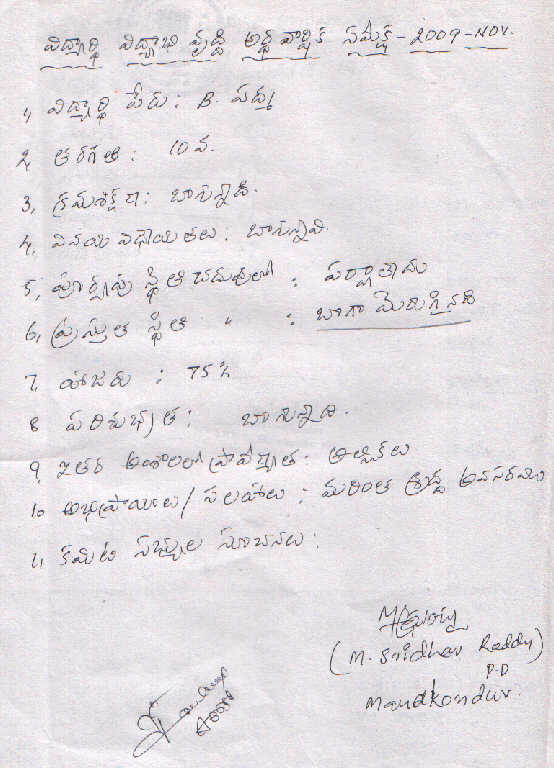 విద్యార్థి విద్యాభి వృద్ధి అర్థ వార్షిక సమీక్ష - 2009 - NOV.
1, విద్యార్థి పేరు : B. పద్మ
2, తరగతి : 10 వ.
3, క్రమశిక్షణ : బాగున్నది.
4, వినయ విధేయతలు : బాగున్నవి.
5, పూర్వపు స్థితి చదువులో : పర్వాలేదు
6, ప్రస్తుత స్థితి " : బాగా మెరుగైనది
7, హాజరు : 75%
8 పరిశుభ్రత : బాగున్నది.
9, ఇతర అంశాలలో ప్రావీణ్యత - ఆటలు
10 అభిప్రాయాలు / సలహాలు : మరింత శ్రద్ధ అవసరము
11, కమిటి సభ్యుల సూచనలు :
(M. Sridhar Reddy)
P.D
Mandkondur.